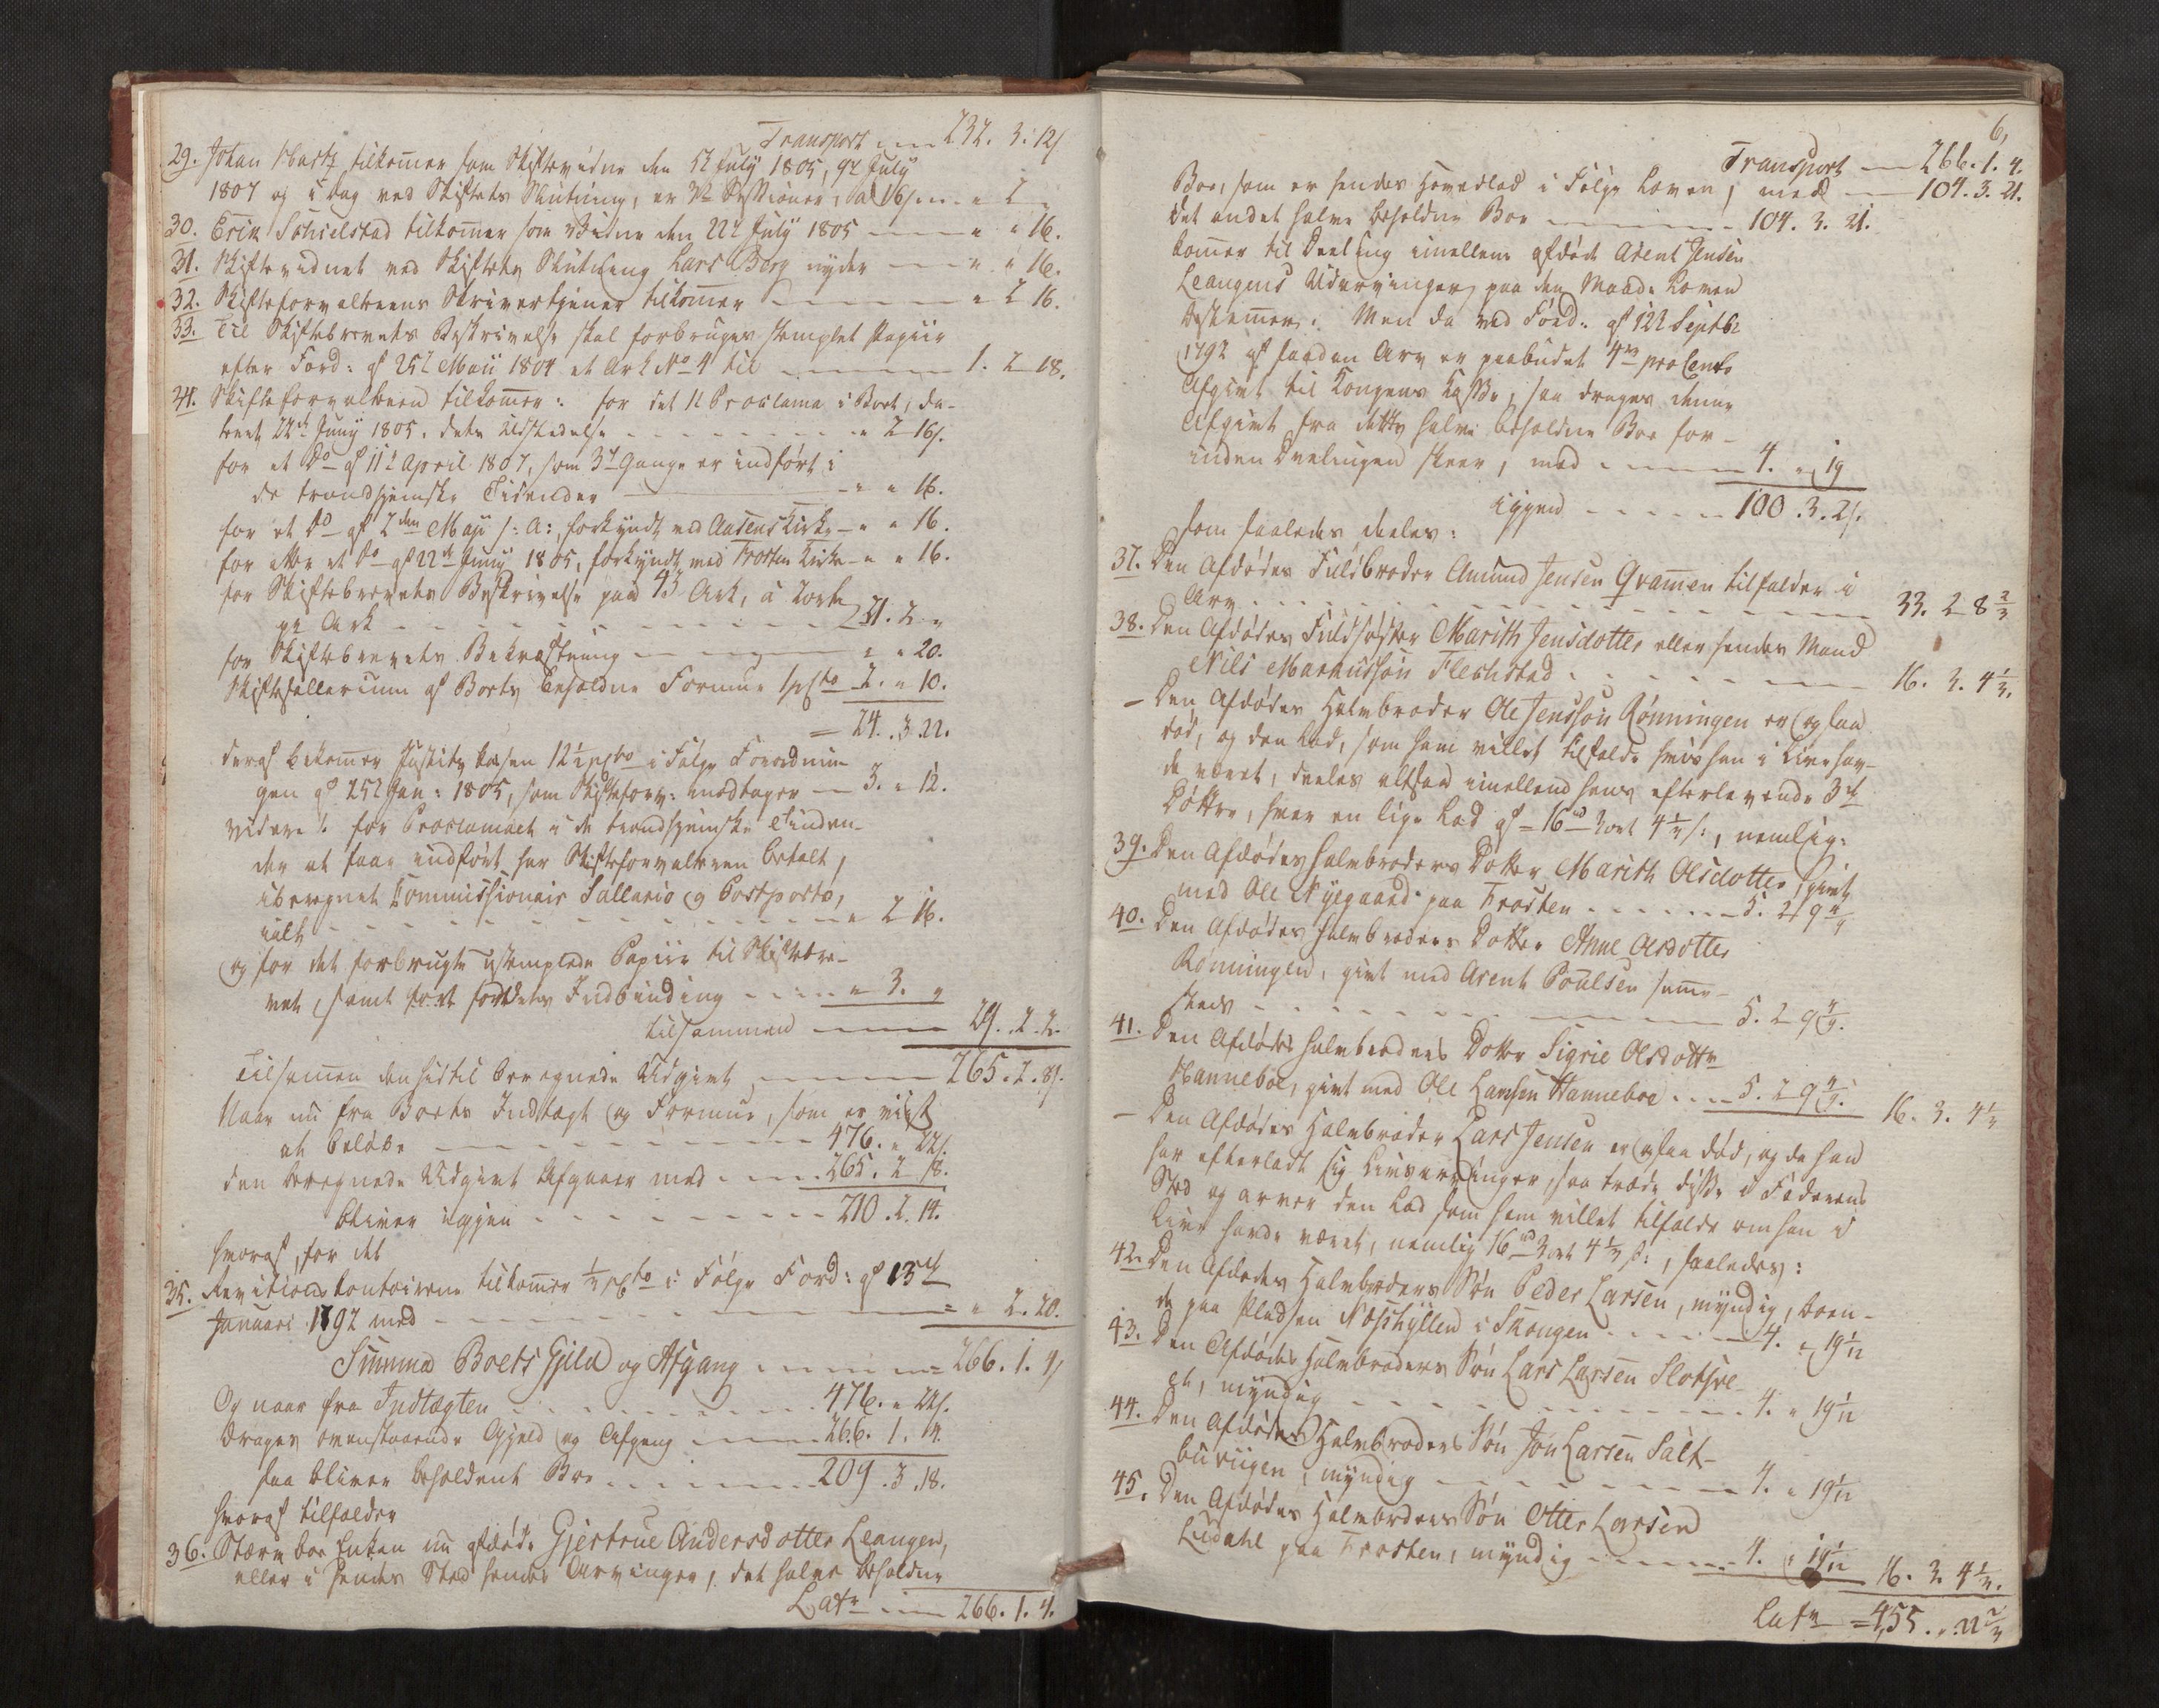 Transport 232. 3. 12 s
29. Johan Hartz tilkommer som Skiftevidne den 5te July 1805, 9de July
1807 og i Dag ved Skiftets Slutning, er 3de Sessioner, a 16 s " 2 "
30. Erik Schielstad tilkommer som Vidne den 22de July 1805 " " 16.
31. Skiftevidnet ved Skiftets Slutning Lars Berg nyder " " 16.
32. Skifteforvalterens Skrivertjener tilkommer " 2 16.
33. Til Skiftebrevets Beskrivelse skal forbruges stemplet Papiir
efter Ford: af 25de Maii 1804 et Ark No 4 til 1. 2 18.
34. Skifteforvalteren tilkommer: for det 1te Proclama i Boet, da-
teret 22de Juny 1805, dets Udstedelse " 2 16 s.
for et Do af 11te April 1807, som 3de Gange er indført i
de trondhjemske Tidender " " 16.
for et Do af 2den Maji s: A: forkyndt ved Aasens Kirke " " 16.
for atter et Do af 22de Juny 1805, forkyndt ved Frosten Kirke " " 16.
for Skiftebrevets Beskrivelse paa 43 Ark, a 2 ort
pr Ark 21. 2 "
for Skiftebrevets Bekræftning " " 20.
Skiftesallarium af Boets beholdne Formue 1 pCto 2. " 10.
= 24. 3. 22.
deraf bekommer Justits Kassen 12½ pCto i Følge Forordnin-
gen af 25de Jan: 1805, som Skifteforv: modtager 3. " 12.
Videre /: for Proclamaet i de trondhjemske Tiden-
der at faae indført har Skifteforvalteren betalt,
iberegnet Commissionair Sallario og Postporto,
ialt " 2 16.
og for det forbrugte ustemplede Papiir til Skiftebre-
vet, samt for dets Indbinding " 3. "
tilsammen 29. 2. 2.
Tilsammen den hidtil beregnede Udgivt 265. 2. 8 s.
Naar nu fra Boets Indtægt og Formue, som er viist
at beløbe 476. " 22 s.
den beregnede Udgivt afgaaer med 265. 2 8.
bliver igjen 210. 2. 14.
hvoraf, for det
35. Revisions Contoirene tilkommer ½ pCto i Følge Ford: af 13de
Januari 1792 med = " 2. 20.
Summa Boets Gjeld og Afgang = 266. 1. 4 s
Og naar fra Indtægten 476. " 22 s.
drages ovenstaaende Gjeld og Afgang 266. 1. 4.
saa bliver beholdent Boe 209. 3. 18.
hvoraf tilfalder
36. Stærvboe Enken nu afdøde Gjertrue Andersdotter Leangen,
eller i hendes Sted hendes Arvinger, det halve beholdne
Latr 266. 1. 4.
6,
Transport 266. 1. 4.
Boe, som er hendes Hovedlod i Følge Loven, med 104. 3. 21.
Det andet halve beholdne Boe 104. 3. 21.
kommer til Deeling imellem afdøde Arent Jensen
Leangens Udarvinger paa den Maade Loven
bestemmer. Men da ved Ford: af 12te Septbr
1792 af saadan Arv er paabudet 4re pro Cento
Afgivt til Kongens Kasse; saa drages denne
Afgivt fra dette halve beholdne Boe for-
inden Deelingen skeer, med 4. " 19
Igjen 100. 3. 2 s.
som saaledes deeles:
37. Den Afdødes Fuldbroder Amund Jensen Qvamen tilfalder i
Arv 33. 2 8 2/3
38. Den Afdødes Fuldsøster Marith Jensdotter eller hendes Mand
Nils Markussøn Fleskstad 16. 3. 4 1/3.
– Den Afdødes Halvbroder Ole Jenssøn Rønningen er og saa
død, og den Lod, som ham villet tilfalde hvis han i Live hav-
de været, deeles altsaa imellem hans efterlevende 3de
Døttre, hver en lige Lod af 16 rd 3 ort 4 1/3 s:, nemlig:
39. Den Afdødes Halvbroders Dotter Marith Olsdotter, givt
med Ole Nyegaard paa Frosten 5. 2 9 4/9
40. Den Afdødes Halvbroders Dotter Anne Olsdotter
Rønningen, givt med Arent Poulsen samme-
steds 5. 2 9 4/9.
41. Den Afdødes Halvbroders Dotter Sigrie Olsdotter
Hanneboe, givt med Ole Hansen Hanneboe 5. 2 9 4/9. 16. 3. 4 1/3
– Den Afdødes Halvbroder Lars Jensen er og saa død, og da han
har efterladt sig Livsarvinger, saa træde disse i Faderens
Sted og arver den Lod som ham villet tilfalde om han i
Live havde været, nemlig 16 rd 3 ort 4 1/3 s:, saaledes:
42. Den Afdødes Halvbroders Søn Peder Larsen, myndig, boen-
de paa Pladsen Næshyllen i Skongen 4. " 19 1/12
43. Den Afdødes Halvbroders Søn Lars Larsen
myndig 4. " 19 1/12
44. Den Afdødes Halvbroders Søn Jon Larsen Salt-
buviigen, myndig 4. " 19 1/12
45. Den Afdødes Halvbroders Søn Otter Larsen
Lidahl paa Frosten, myndig 4. " 19 1/12 16. 3. 4 1/3.
Latr = 455. " 22 2/3